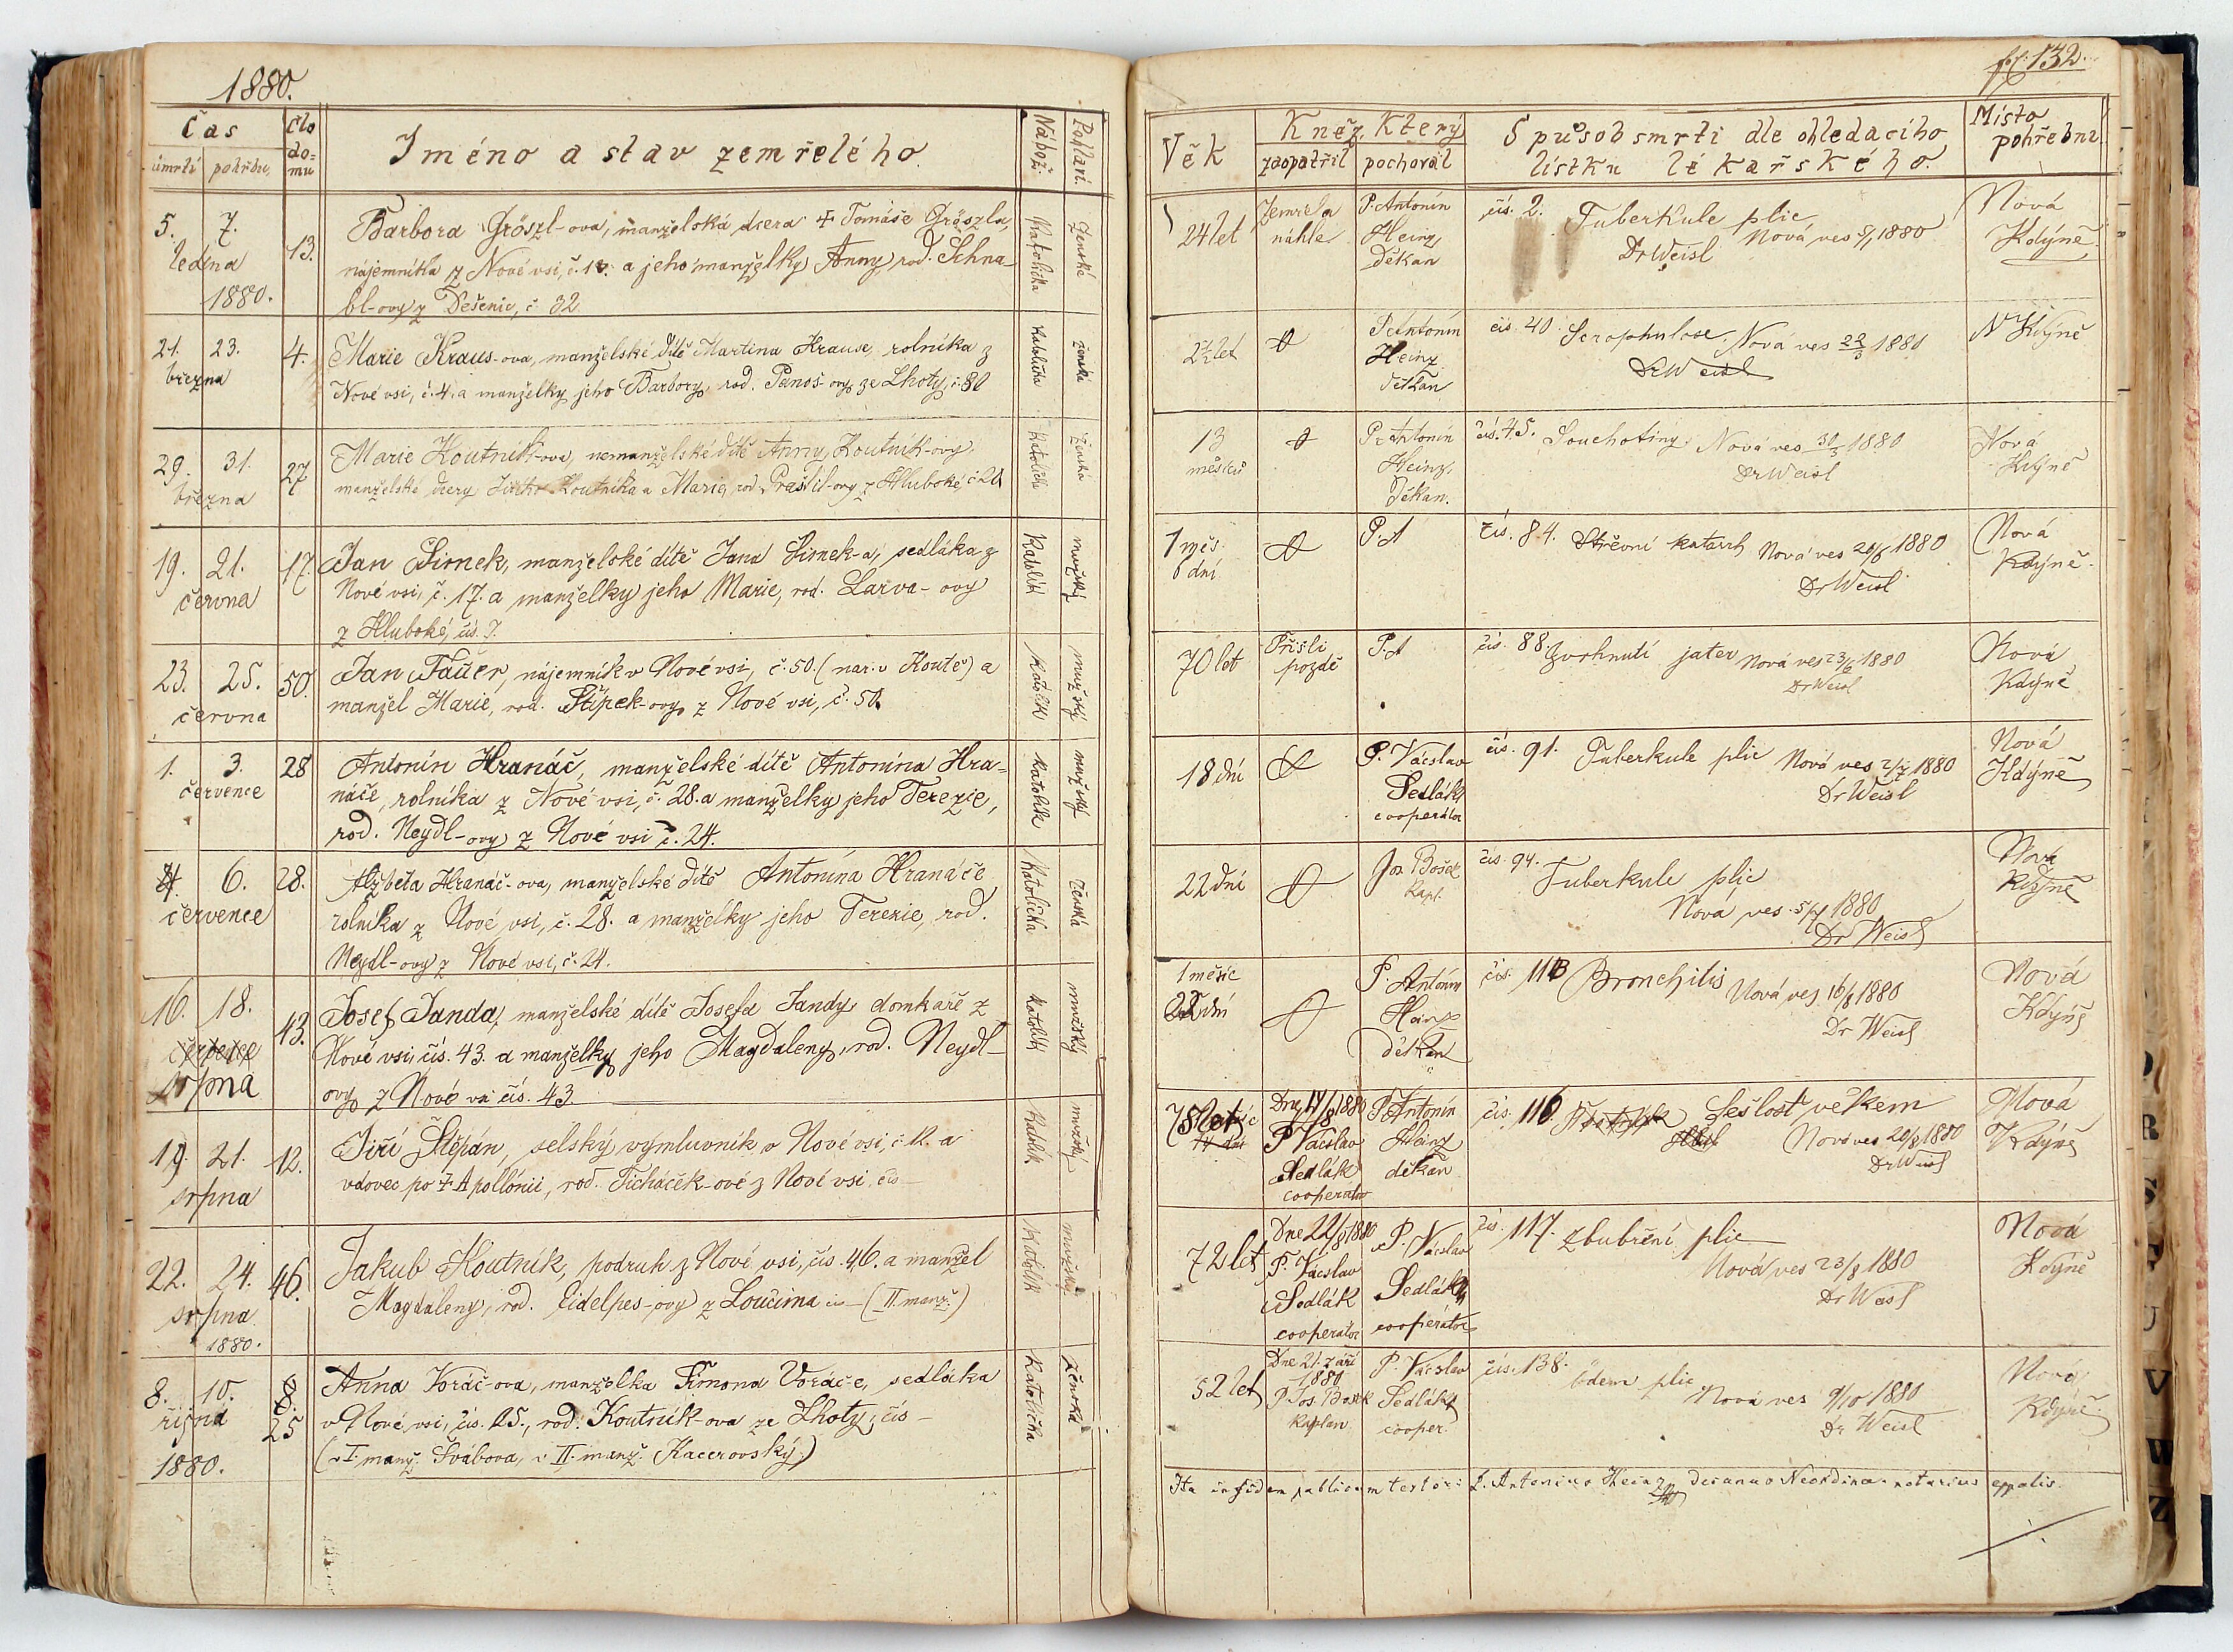 1880.
Čas
úmrtí
pohřbu
Čło
do=
mu
Jméno a stav zemřelého
Nábož.
Pohlaví.
5. 7.
ledna
1880.
13.
Barbora Grössl-ova, manželská dcera † Tomáše Grössla,
nájemníka z Nové vsi, č. a jeho manželky Anny rod. Schna-
bl-ovy z Dešenic, č. 32
Katolička
Ženské
21. 23.
března
4.
Marie Kraus-ova, manželské dítě Martina Krause, rolníka z
Nové vsi, č. 4. a manželky jeho Barbory, rod. Panoš-ovy ze Lhoty, č. 80
Katolička
ženské
29. 31.
března
27
Marie Koutník-ova, nemanželské dítě Anny Koutník-ovy,
manželské dcery Koutníka a Marie, rod. Praštil-ovy z Hluboké, č 20
Katolička
Ženská
19. 21.
června
17.
Jan Šimek, manželské dítě Jana Šimek-a, sedláka z
Nové vsi, č. 17. a manželky jeho Marie, rod. Larva-ovy
z Hluboké, čís. 7.
Katolík
mužský
23. 25.
června
50.
Jan Tauer, nájemník v Nové vsi, č. 50. (nar. v Koutě) a
manžel Marie, rod. Štípek-ovy z Nové vsi, č. 50.
Katolík
mužský
1. 3.
července
28
Antonín Hranáč, manželské dítě Antonína Hra=
náče, rolníka z Nové vsi, č. 28. a manželky jeho Terezie,
rod. Neydl-ovy z Nové vsi č. 24.
Katolík
mužský
4. 6.
července
28.
Alžběta Hranáč-ova, manželské dítě Antonína Hranáče
rolníka z Nové vsi, č. 28. a manželky jeho Terezie, rod.
Neydl-ovy z Nové vsi, č. 24.
Katolička
ženská
16. 18.
července
srpna
43.
Josef Janda, manželské dítě Josefa Jandy, domkaře z
Nové vsi, čís. 43. a manželky jeho Magdaleny, rod. Neydl-
ovy z Nové vsi čís. 43.
Katolík
mužský
19. 21.
srpna
12.
Jiří Štěpán, selský výmluvník v Nové vsi, č. 12. a
vdovec po † Apollónii, rod. Ticháček-ové z Nové vsi, čís –
Katolík
mužský
22. 24.
srpna
1880.
46.
Jakub Koutník, podruh z Nové vsi, čís. 46. a manžel
Magdaleny, rod. Eidelpes-ovy z Loučima čís – (II. manž.)
Katolík
mužský
8. 10.
října
1880.
8.
25
Anna Voráč-ova, manželka Šimona Voráč-e, sedláka
v Nové vsi, čís. 25., rod. Koutník-ova ze Lhoty, čís –
(v I. manž. Švábova, v II. manž. Kacerovský)
Katolička
ženská
fol. 132.
Věk
Kněz, Který
zaopatřil
pochoval
Spůsob smrti dle ohledacího
lístku lékařského.
Místo
pohřební.
24 let
Zemřela
náhle
P. Antonín
Heinz
děkan
čís. 2. Tuberkule plic
Nová ves 5/1 1880
Dr Weisl
Nová
Kdýně
2½ let
P. Antonín
Heinz
děkan
čís. 40. Scrophulose. Nová ves 22/3 1880
Dr Weisl
N Kdýně
13
měsíců
P. Antonín
Heinz
děkan.
čís. 45. Souchotiny. Nová ves 30/3 1880
Dr Weisl
Nová
Kdýně
1 měs.
6 dní
P. A
čís. 84. Střevní katarrh Nová ves 20/6 1880
Dr Weisl
Nová
Kdýně.
70 let
Přišli
pozdě
P. A
čís. 88. Zvrhnutí jater Nová ves 23/6 1880
Dr Weisl
Nová
Kdýně
18 dní
P. Václav
Sedlák
cooperátor
čís. 91. Tuberkule plic Nová ves 2/7 1880
Dr Weisl
Nová
Kdýně
22 dní
Jos. Bošek
Kapl.
čís. 94. Tuberkule plic
Nová ves 5/7 1880
Dr Weisl
Nová
Kdýně
1 měsíc
22 dní
P. Antonín
Heinz
děkan
čís. 113 Bronchitis Nová ves 16/8 1880
Dr Weisl
Nová
Kdýně
75 let
Dne 14/8 1880
P. Václav
Sedlák
cooperator
P. Antonín
Heinz
děkan
čís. 116. Sešlost věkem
Nová ves 20/8 1880
Dr Weisl
Nová
Kdýně
72 let
Dne 22/8 1880
P. Václav
Sedlák
cooperátor
P. Václav
Sedlák
cooperátor
čís. 117. Zbubření plic
Nová ves 23/8 1880
Dr Weisl
Nová
Kdýně
52 let
Dne 21. září
1880
P. Jos. Bošek
Kaplan
P. Václav
Sedlák
cooper.
čís. 138.
ödem plic
Nová ves 9/10 1880
Dr Weisl
Nová
Kdýně
Ita in fidem publicam testor: P. Antonius Heinz decanus Neokdinen. notarius eppalis.
R
S
U
V
W
Z